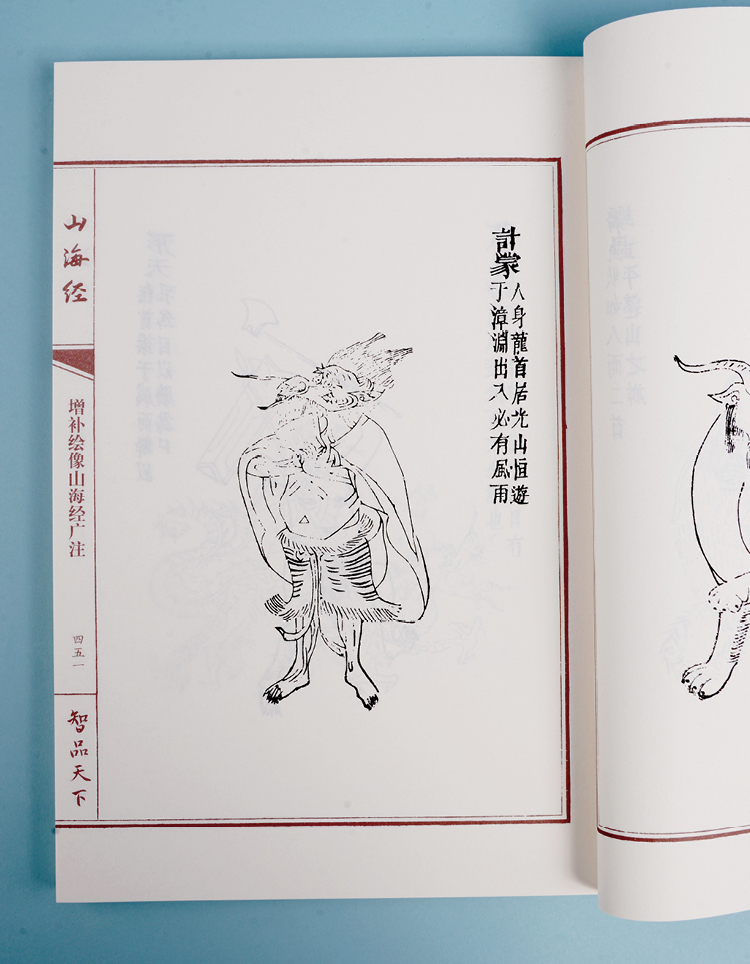 計蒙
人身龍首居光山恒遊
于漳淵出入必有風雨
山海经
增补绘像山海经广注
四五一
智品天下